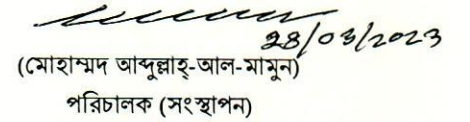 28/03/2023
(মোহাম্মদ আব্দুল্লাহ্-আল-মামুন)
পরিচালক (সংস্থাপন)